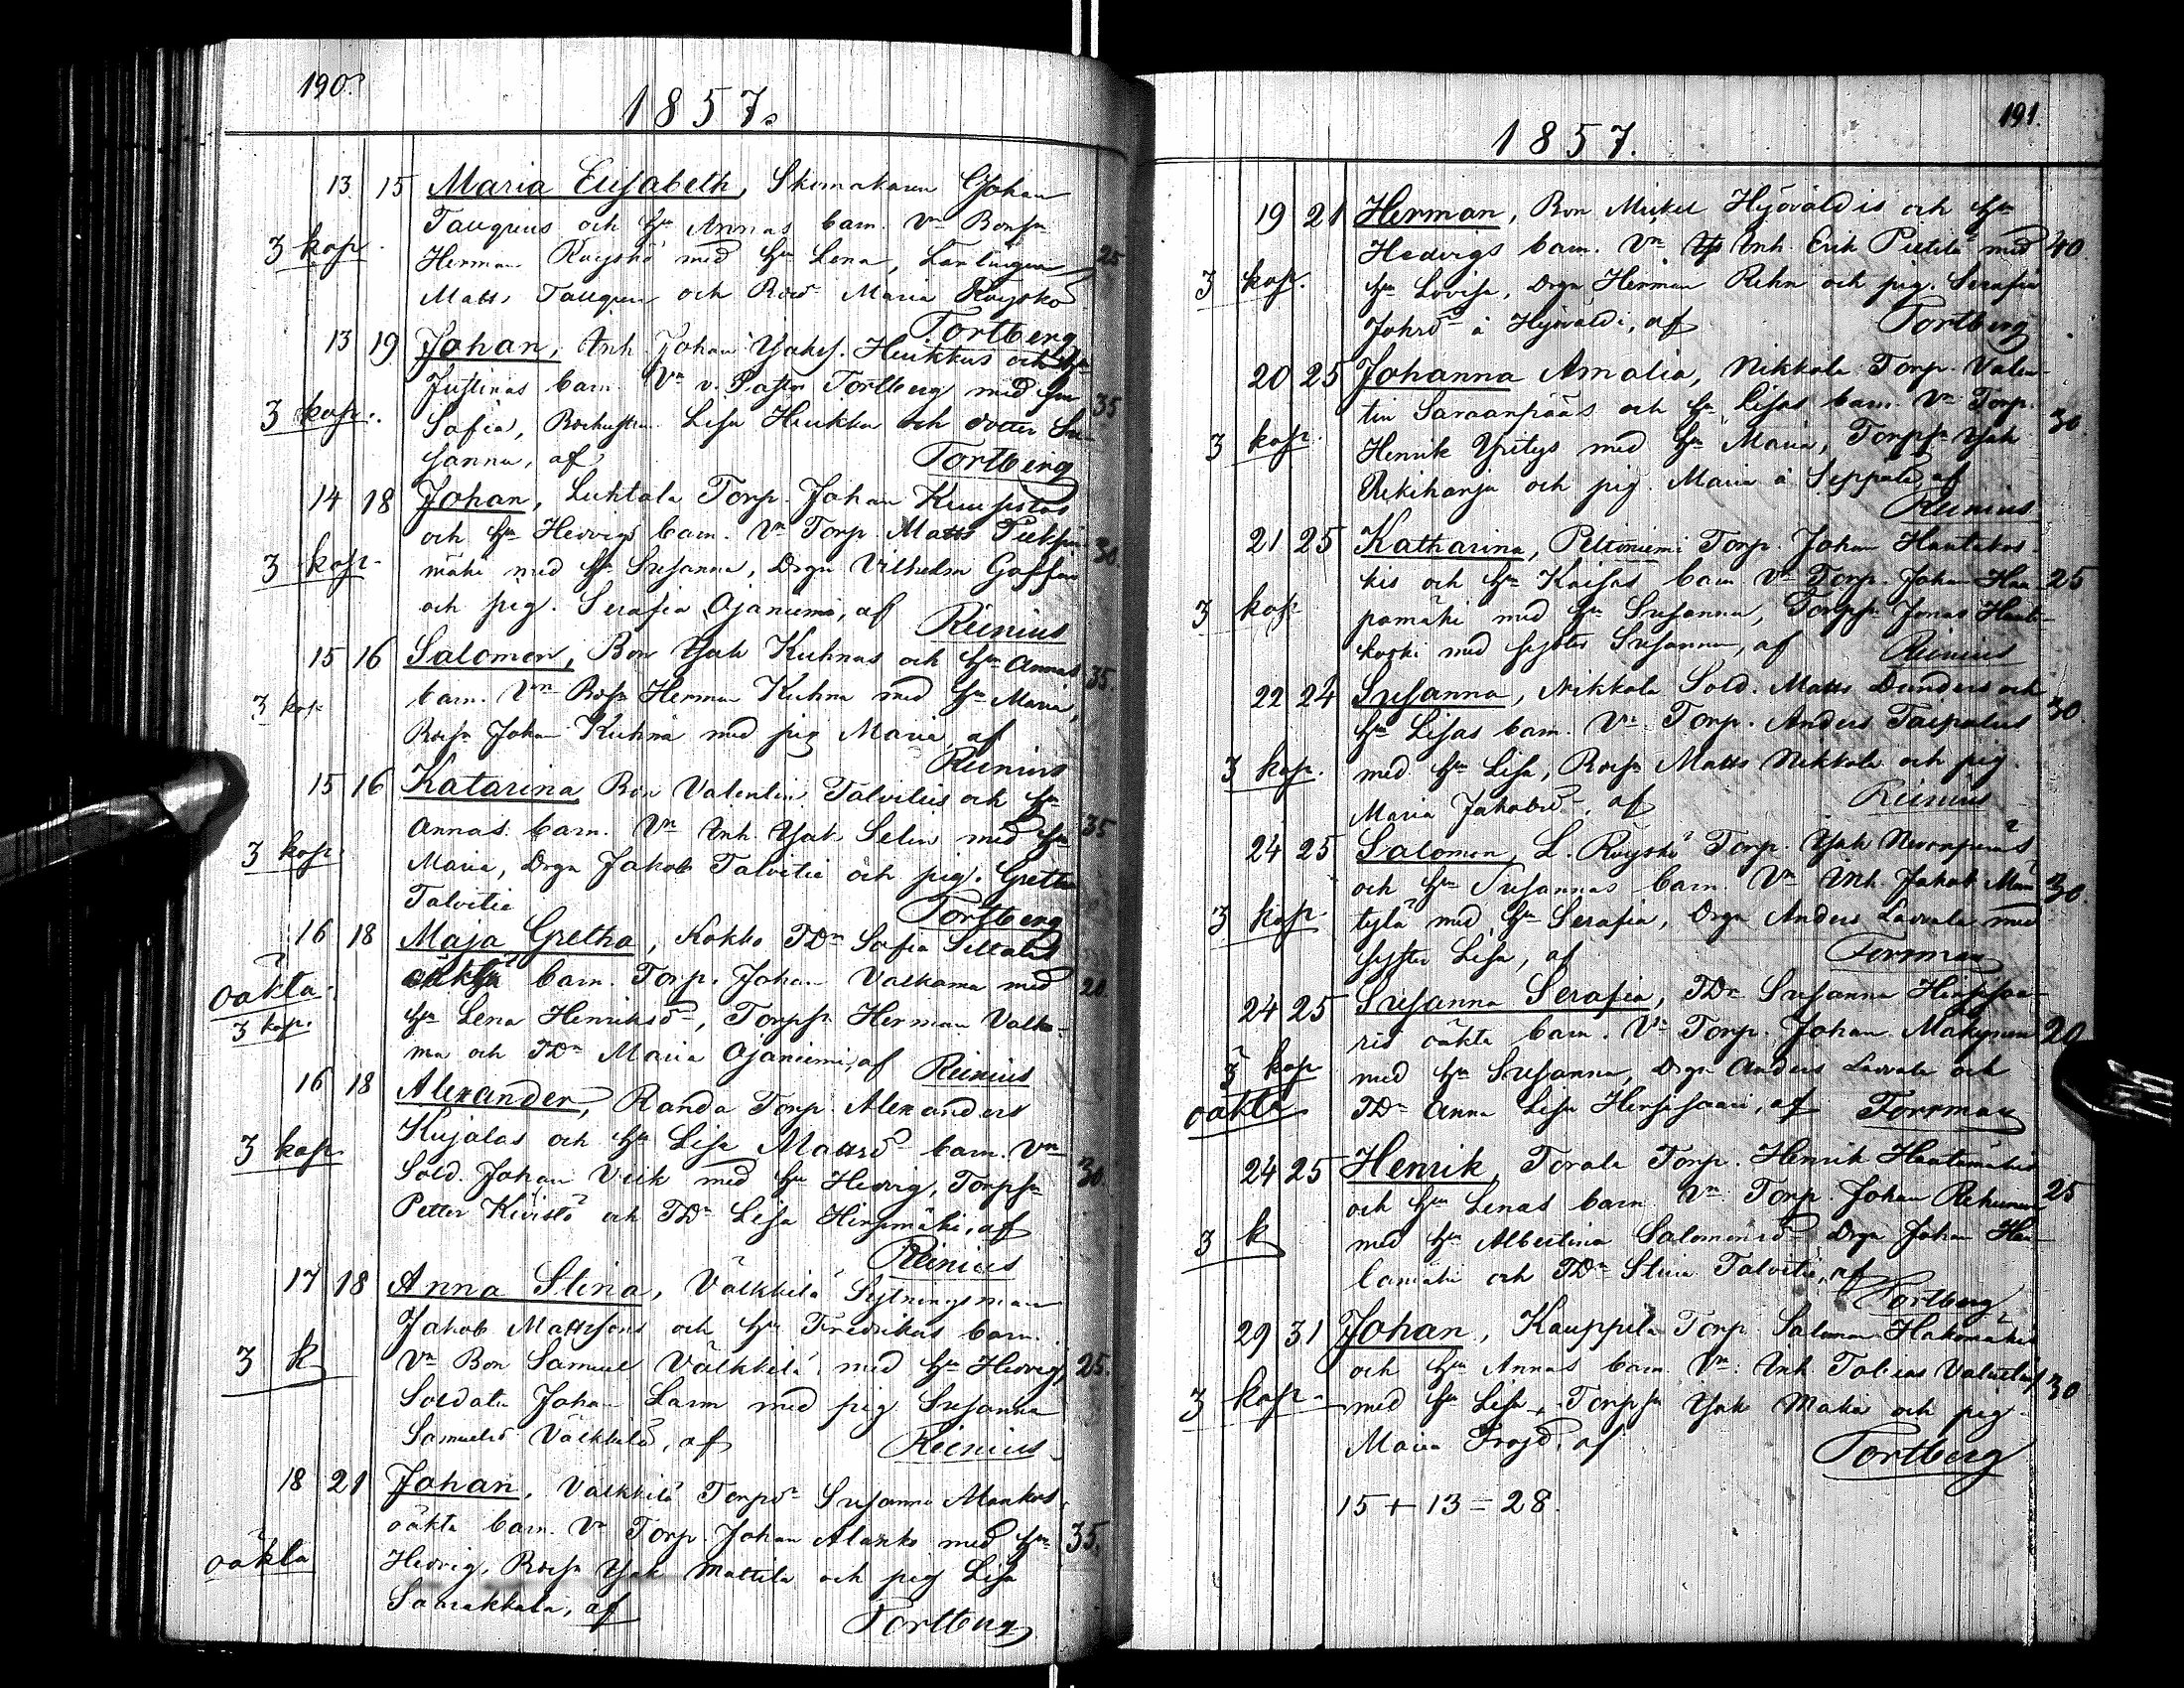 190.
1857.
13 15 Maria Elisabeth, Skomakaren Johan
Taugrens och hu Annas barn. Vn Bonsn
3 kop. Herman Röyskö med hu Lena, Lärlingen 25
Matts Taugren och Bond. Maria Röyskö
Tortberg
13 19 Johan, Inh. Johan Jakess. Heikkus och hu
Justinas barn. Vn v. Pastor Tortberg med fru 35
3 kop. Sofia, Lisa Heikku och dotter Su-
sanna, af Tortberg
14 18 Johan, Luhtala Torp. Johan
och hu Hedvigs barn. Vn Torp. Matts 30
3 kop. mäki med hu Susanna, Drgn Vilhelm
och pig. Serafia Ojaniemi, af Reinius
15 16 Salomon, Bon Isak Kuhnas och hu Annas 35.
3 kop barn. Vn Bosn Herman Kuhna med hu Maria,
Bosn Johan Kuhna med pig Maria, af
Reinius
15 16 Katarina Bon Valentin Talvities och hu
Annas barn. Vn Inh. Isak Selin med hu 35
3 kop. Maria, Drgn Jakob Talvitie och pig. Gretha
Talvitie Tortberg
16 18 Maja Gretha, Kokko TDr Sofia Siltalas
oäkta. oäkta barn. Torp. Johan Valkama med 20
3 kop. hu Lena Henriksd, Torpsn Herman Valka-
ma och TDr Maria Ojaniemi, af Reinius
16 18 Alexander, Randa Torp. Alexanders
Kujalas och hu Lisa Mattsd barn. Vn
3 kop. Sold. Johan Viik med hu Hedvig, Torpsn 30.
Petter Kivistö och TDr Lisa Hirsimäki, af
Reinius
17 18 Anna Stina, Välkkilä Sytningsman
Jakob Mattssons och hu Fredrikas barn.
3 k Vn Bon Samuel Välkkilä med hu Hedvig, 25.
Soldaten Johan Larm med pig Susanna
Samuelsd Välkkilä, af Reinius
18 21 Johan, Välkkilä Torpd Susanna
oäkta barn. Vn Torp. Johan Alanko med hu 35.
oäkta Hedvig, Bosn Isak Mattila och pig Lisa
Saarakkala, af Tortberg
191.
1857.
19 21 Herman, Bon Mickel Hyövältis och hu
Hedvigs barn. Vn Inh. Erik Pietilä med 40
3 kop. hu Lovisa, Drgn Herman Rehn och pig. Serafia
Johsd å Hyövälti, af Tortberg
20 25 Johanna Amalia, Nikkola Torp. Valen-
tin Saraanpääs och hu Lisas barn. Vn Torp. 30.
3 kop. Henrik Yritys med hu Maria, Torpsn Isak
Rekiharja och pig. Maria å Seppälä, af
Reinius
21 25 Katharina, Peltoniemi Torp. Johan Hautakos-
kis och hu Kaisas barn Vn Torp. Johan Haa- 25
3 kop pamäki med hu Susanna, Torpsn Jonas Hauta-
koski med syster Susanna, af Reinius
22 24 Susanna, Nikkola Sold. Matts Dunders och 30.
hu Lisas barn. Vn Torp. Anders Taipalus
3 kop. med hu Lisa, Bosn Matts Nikkola och pig.
Maria Jakobsd, af Reinius
24 25 Salomon, L. Röyskö Torp. Isak
och hu Susannas barn. Vn Inh. Jakob Män- 30.
3 kop. tylä med hu Serafia, Drgn Anders Laurula med
syster Lisa, af Forsman
24 25 Susanna Serafia, TDr Susanna Hirsisaa-
ris oäkta barn. Vn Torp. Johan Mäkynen 20
3 kop med hu Susanna, Drgn Anders Laurula och
oäkta TDr Anna Lisa Hirsisaari, af Forsman
24 25 Henrik, Torala Torp. Henrik Hautamäkis
och hu Lenas barn Vn Torp. Johan 25
3 k med hu Albertina Salomonsd Drgn Johan
lamäki och TDr Stina Talvitie, af
Tortberg
29 31 Johan, Kauppila Torp. Salomon Hakomäkis
och hu Annas barn. Vn Inh Tobias
3 kop. med hu Lisa, Torpsn Isak Mäki och pig 30
Maria Frojd, af Tortberg
15 + 13 = 28.